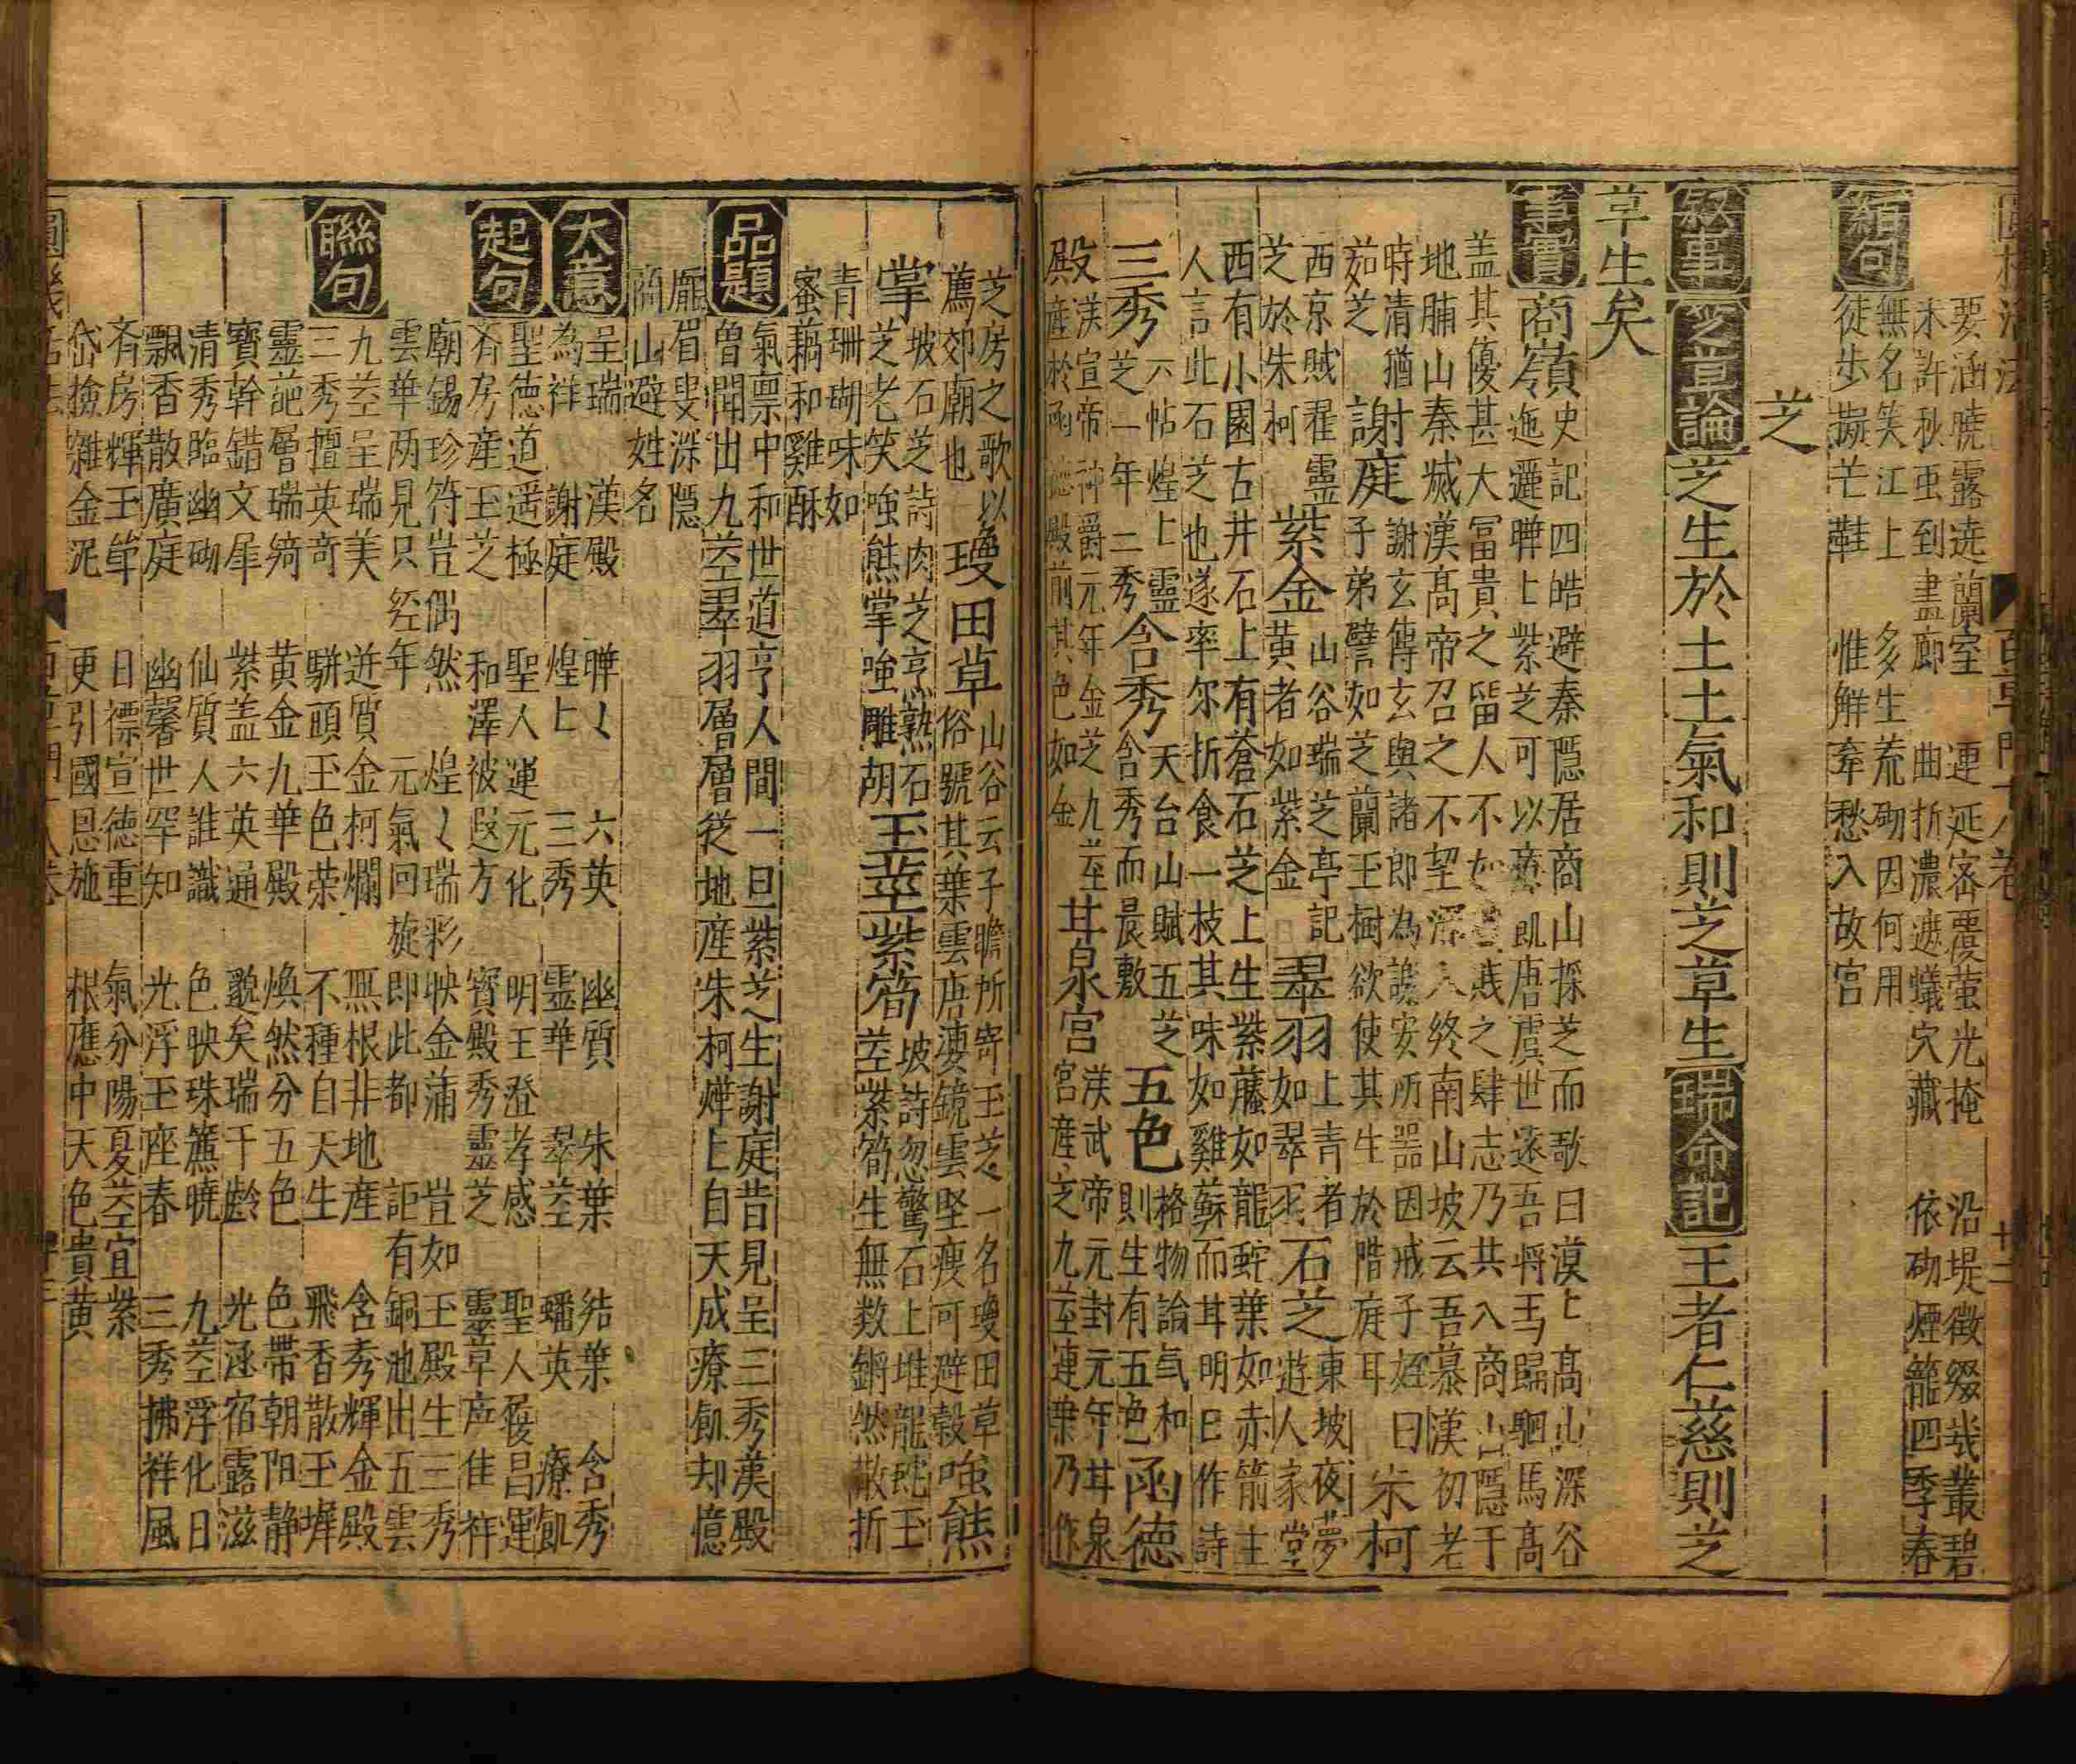 要涵曉露遶蘭室 連延密覆螢光掩 沿堤徵綴哉叢碧
未許秋虫到畫廊 曲折濃遮蟻穴藏 依砌煙籠四季春
結句
無名笑江上 多生荒砌因何用
徒步蹑芒鞋 惟解牽愁入故宮
芝
敘事 芝草論 芝生於土土氣和則芝草生 瑞命記 王者仁慈則芝
草生矣
事實 商嶺
史記四皓避秦隱居商山採芝而歌曰漠〻高山深谷
迤邐曄〻紫芝可以療飢唐虞世遠吾將焉歸駟馬高
盖其優甚大冨貴之留人不如貧賤之肆志乃共入商山隱于
地腑山秦滅漢高帝召之不望深入終南山坡云吾慕漢初老
時清猶茹芝
謝庭
謝玄傅玄與諸郎為謝安所噐因戒子姪曰
子弟譬如芝蘭玉樹欲使其生於階庭耳
朱柯
西京賦濯靈芝於朱柯
紫金
山谷瑞芝亭記黄者如紫金
翠羽
上青者如翠羽
石芝
東坡夜夢遊人家堂
西有小園古井石上有蒼石芝上生紫藤如龍蛇葉如赤箭主
人言此石芝也遂率尔折食一枝味如雞蘇而甘明日作詩
三秀
六帖煌〻靈芝一年二秀
含秀
天台山賦五芝含秀而晨敷
五色
格物論氣和則生有五色
函德殿
漢宣帝神爵元年金芝九莖産於函德殿前其色如金
甘泉宮
漢武帝元封元年甘泉宮産芝九莖連葉乃作
芝房之歌以薦郊廟也
瓊田草
山谷云子瞻所寄玉芝一名瓊田草
俗號其葉雲唐婆鏡雲堅瘦可避穀
強熊掌
坡石芝詩肉芝烹熟石芝老笑唾熊掌唾雕胡
玉莖紫筍
坡詩忽驚石上堆龍蛇玉莖紫筍生無数鏘然散折
青珊瑚味如蜜藕和雞酥
品題
氣禀中和世道亨人間一旦紫芝生謝庭昔見呈三秀漢殿
曽聞出九莖翠羽層層從地産朱柯燁上自天成療飢却憶
龐眉叟深隱商山避姓名
大意
呈瑞 漢殿 曄〻 六英 幽質 朱葉 結葉 含秀
為祥 謝庭 煌〻 三秀 靈華 翠莖 蟠英 療飢
起句
聖德道遥極 聖人運元化 明王登孝感 聖人膺昌運
斉房産玉芝 和澤被遐方 寳殿秀靈芝 靈草産佳祥
廟錫珍符豈偶然 煌〻瑞彩映金蒲 豈如玉殿生三秀
雲華两見只經年 元氣回旋即此都 詎有銅池出五雲
聯句
九莖呈瑞美 迸質金柯爛 無根非地産 含秀輝金殿
三秀擅英竒 駢頭玉色荣 不種自天生 飛香散玉墀
靈葩層瑞綺 黄金九華殿 煥然分五色 色帶朝阳静
寳幹錯文犀 紫盖六英通 邈矣瑞千齡 光涵宿露滋
清秀臨幽砌 仙質人誰識 色映珠簾曉 九莖浮化日
飄香散廣庭 幽馨世罕知 光浮玉座春 三秀拂祥風
斉房輝玉斚 日褾宣德重 氣分陽夏莖宜紫
岱撿雜金泥 更引國恩施 根應中天色貴黄